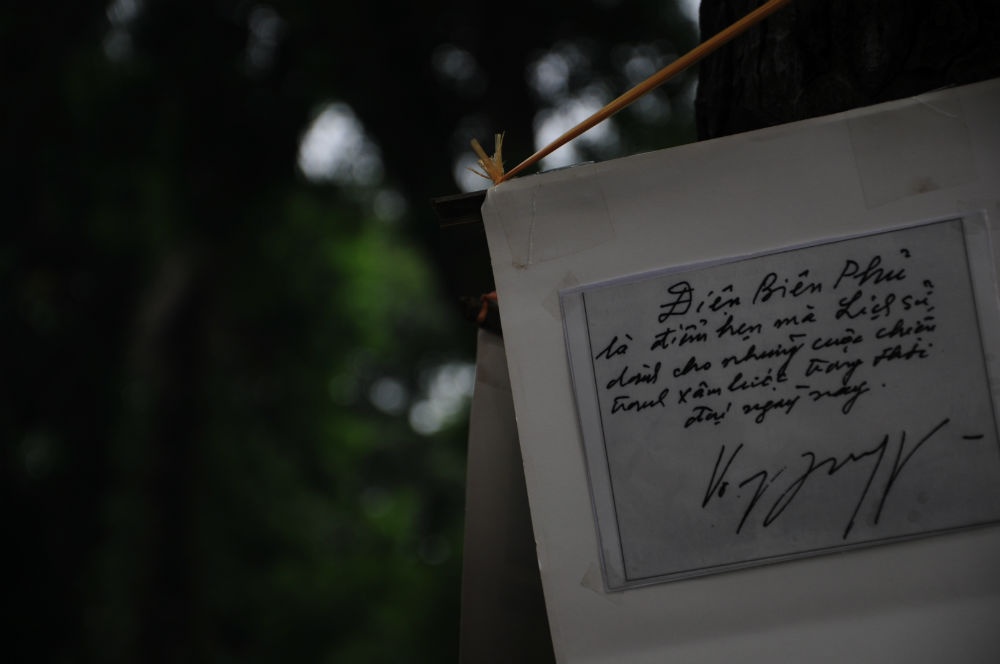 Điện Biên Phủ
là điểm hẹn mà Lịch sử
dành cho những cuộc chiến
tranh xâm lược trong thời
đại ngày nay.